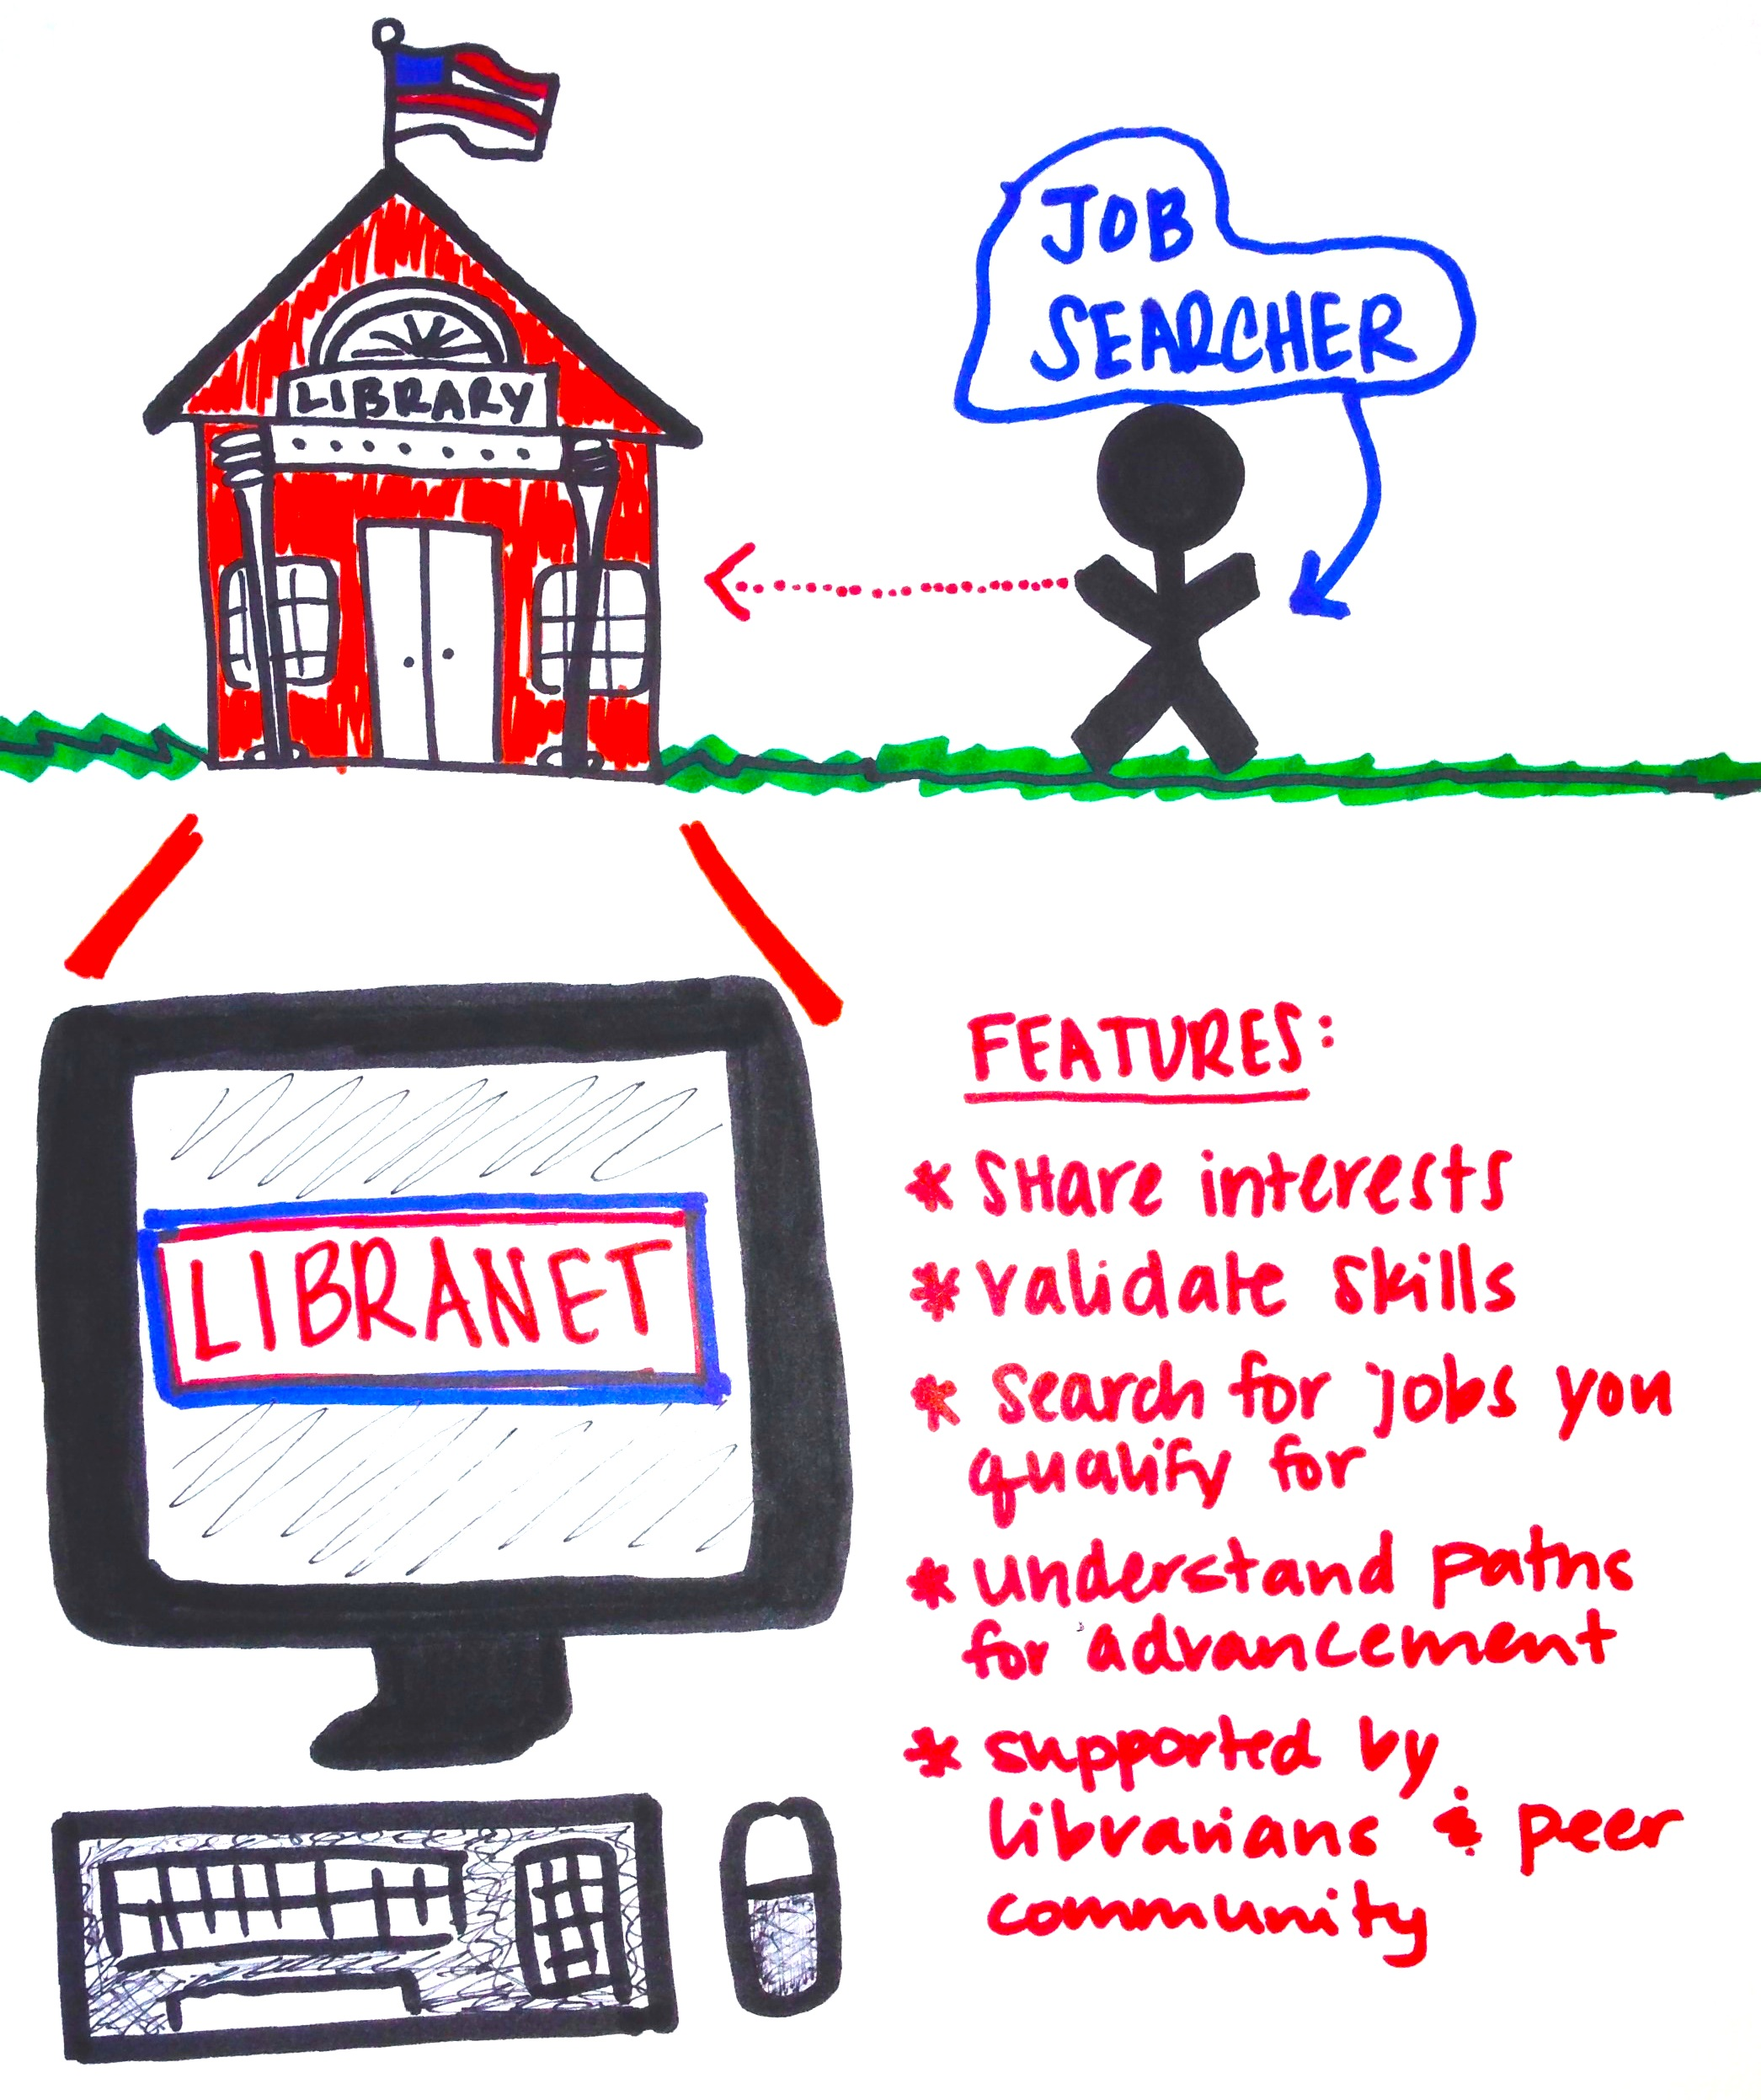 LIBRARY
JOB
SEARCHER
LIBRANET
FEATURES:
* SHare interests
* validate skills
* search for jobs you
qualify for
* understand paths
for advancement
* supported by
librarians & peer
community